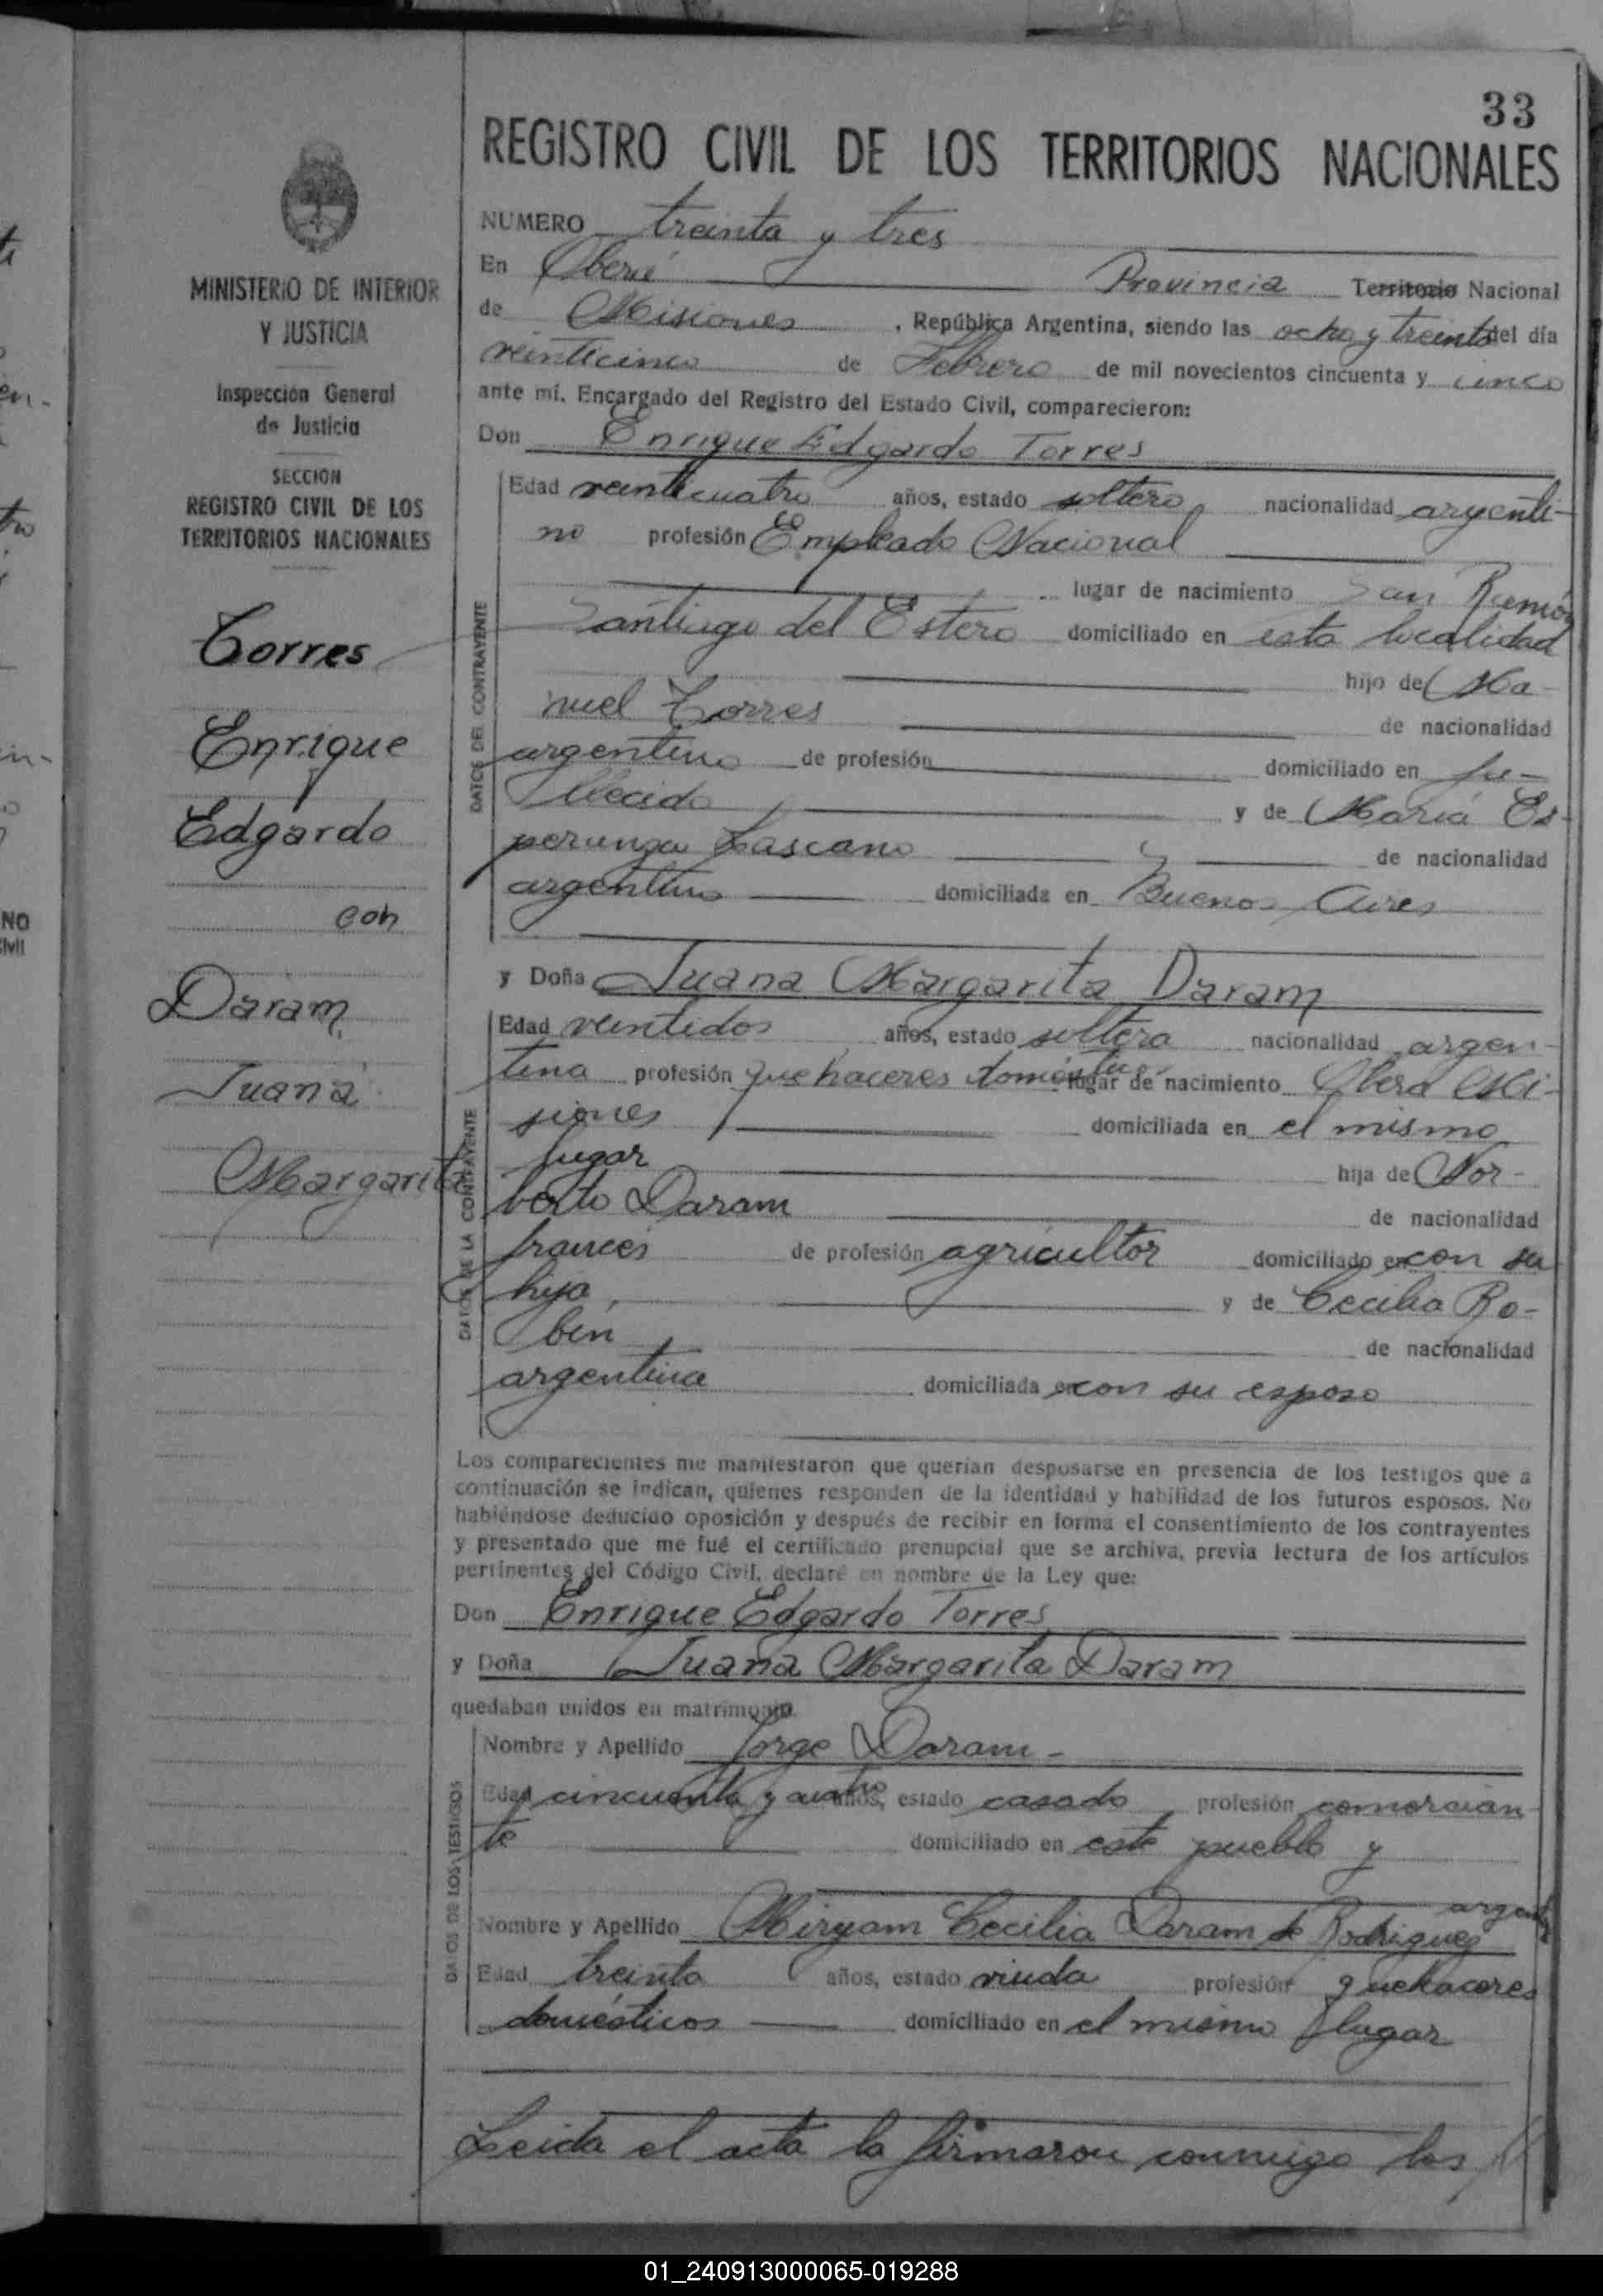 33
REGISTRO CIVIL DE LOS TERRITORIOS NACIONALES
NUMERO treinta y tres
En Oberá Provincia Territorio Nacional
de Misiones, República Argentina, siendo las ocho y treinta del día
veinticinco de Febrero de mil novecientos cincuenta y cinco
ante mí, Encargado del Registro del Estado Civil, comparecieron:
Don Enrique Edgardo Torres
Edad veinticuatro años, estado soltero, nacionalidad argenti-
no profesión Empleado Nacional
lugar de nacimiento San Ramón
Santiago del Estero domiciliado en esta localidad
hijo de Ma-
nuel Torres de nacionalidad
argentino de profesión domiciliado en fa-
llecido y de María Es-
peranza Lascano y de nacionalidad
argentina domiciliada en Buenos Aires
y Doña Juana Margarita Daram
Edad veintidos años, estado soltera nacionalidad argen-
tina profesión quehaceres domésticos lugar de nacimiento Oberá Mi-
siones domiciliada en el mismo
lugar hija de Nor-
berto Daram de nacionalidad
francés de profesión agricultor domiciliado en con su
hija, y de Cecilia Ro-
ben de nacionalidad
argentina domiciliada en con su esposo
Los comparecientes me manifestaron que querían desposarse en presencia de los testigos que a
continuación se indican, quienes responden de la identidad y habilidad de los futuros esposos. No
habiéndose deducido oposición y después de recibir en forma el consentimiento de los contrayentes
y presentado que me fué el certificado prenupcial que se archiva, previa lectura de los artículos
pertinentes del Código Civil, declaré en nombre de la Ley que:
Don Enrique Edgardo Torres
y Doña Juana Margarita Daram
quedaban unidos en matrimonio.
Nombre y Apellido Jorge Daram-
Edad cincuenta y cuatro años, estado casado profesión comercian-
te domiciliado en este pueblo y
Nombre y Apellido Miryam Cecilia Daram de Rodrigues
Edad treinta años, estado viuda profesión quehaceres
domésticos domiciliado en el mismo lugar
Leida el acta la firmaron conmigo los
MINISTERIO DE INTERIOR
Y JUSTICIA
Inspección General
de Justicia
SECCION
REGISTRO CIVIL DE LOS
TERRITORIOS NACIONALES
Torres
Enrique
Edgardo
con
Daram
Juana
Margarita
DATOS DEL CONTRAYENTE
DATOS DE LA CONTRAYENTE
DATOS DE LOS TESTIGOS
01_240913000065-019288